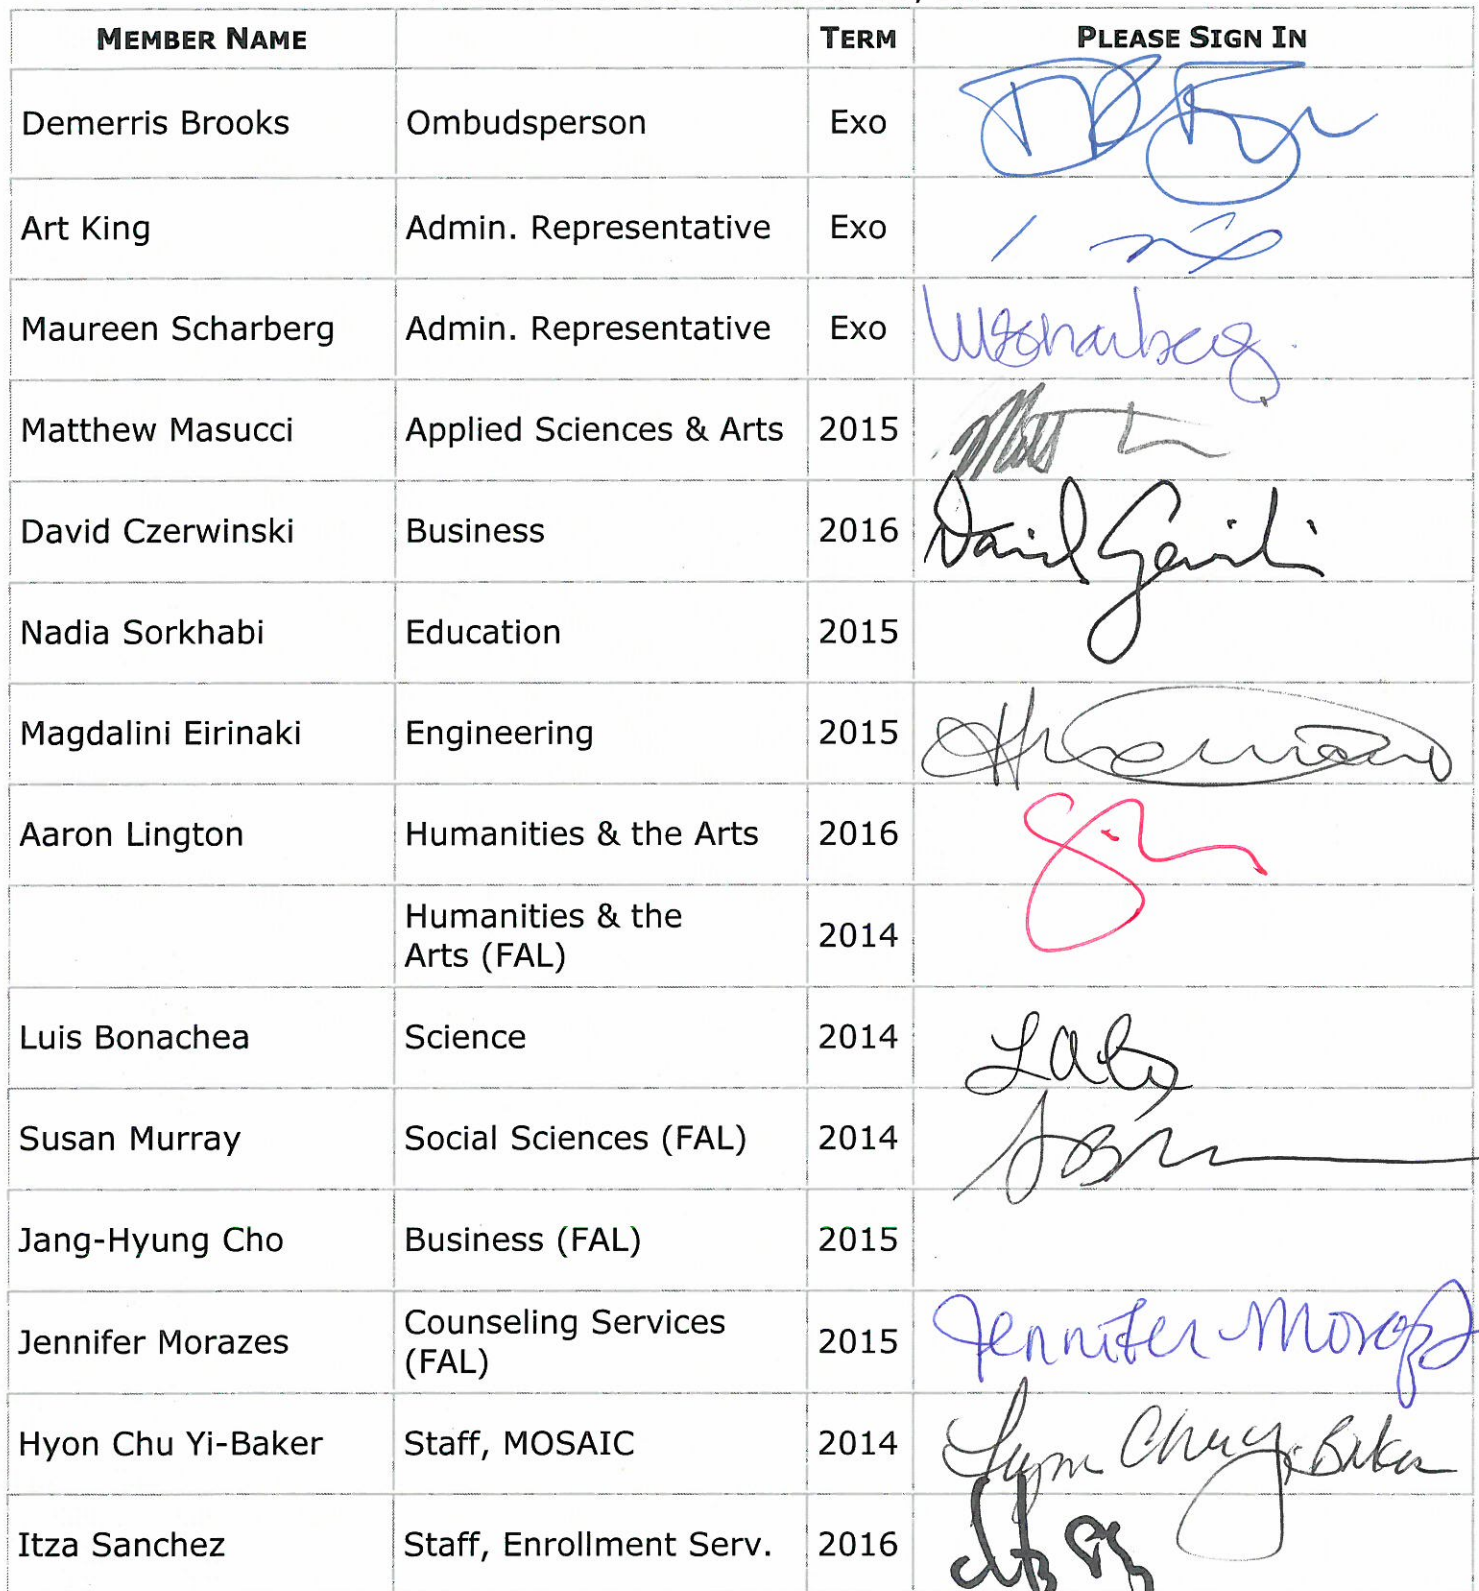 MEMBER NAME TERM PLEASE SIGN IN
Demerris Brooks Ombudsperson Exo
Art King Admin. Representative Exo
Maureen Scharberg Admin. Representative Exo MScharberg
Matthew Masucci Applied Sciences & Arts 2015
David Czerwinski Business 2016 David
Nadia Sorkhabi Education 2015
Magdalini Eirinaki Engineering 2015
Aaron Lington Humanities & the Arts 2016
Humanities & the
Arts (FAL) 2014
Luis Bonachea Science 2014
Susan Murray Social Sciences (FAL) 2014
Jang-Hyung Cho Business (FAL) 2015
Jennifer Morazes Counseling Services
(FAL) 2015 Jennifer Morazes
Hyon Chu Yi-Baker Staff, MOSAIC 2014 Hyon Chu Yi-Baker
Itza Sanchez Staff, Enrollment Serv. 2016